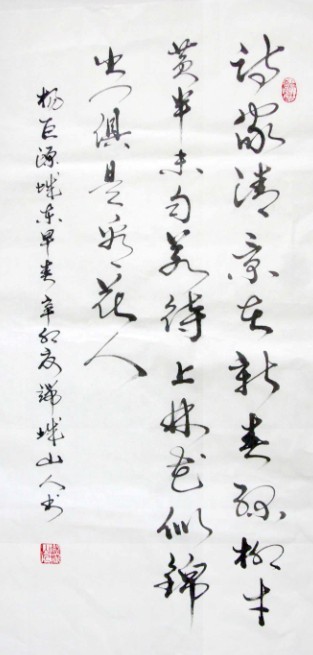 诗家清景在新春绿柳才
黄半未匀若待上林花似锦
出门俱是看花人
杨巨源城东早春辛卯夏锦城山人书